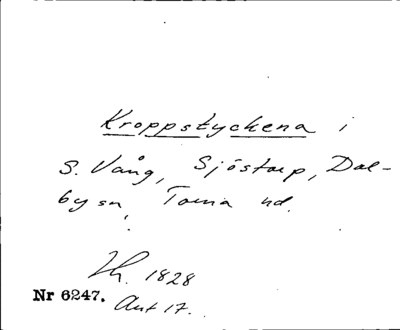 Kroppstyckena i
S. Vång, Sjöstorp, Dal-
by sn, Torna hd.
1828
Nr 6247. Ant 17.